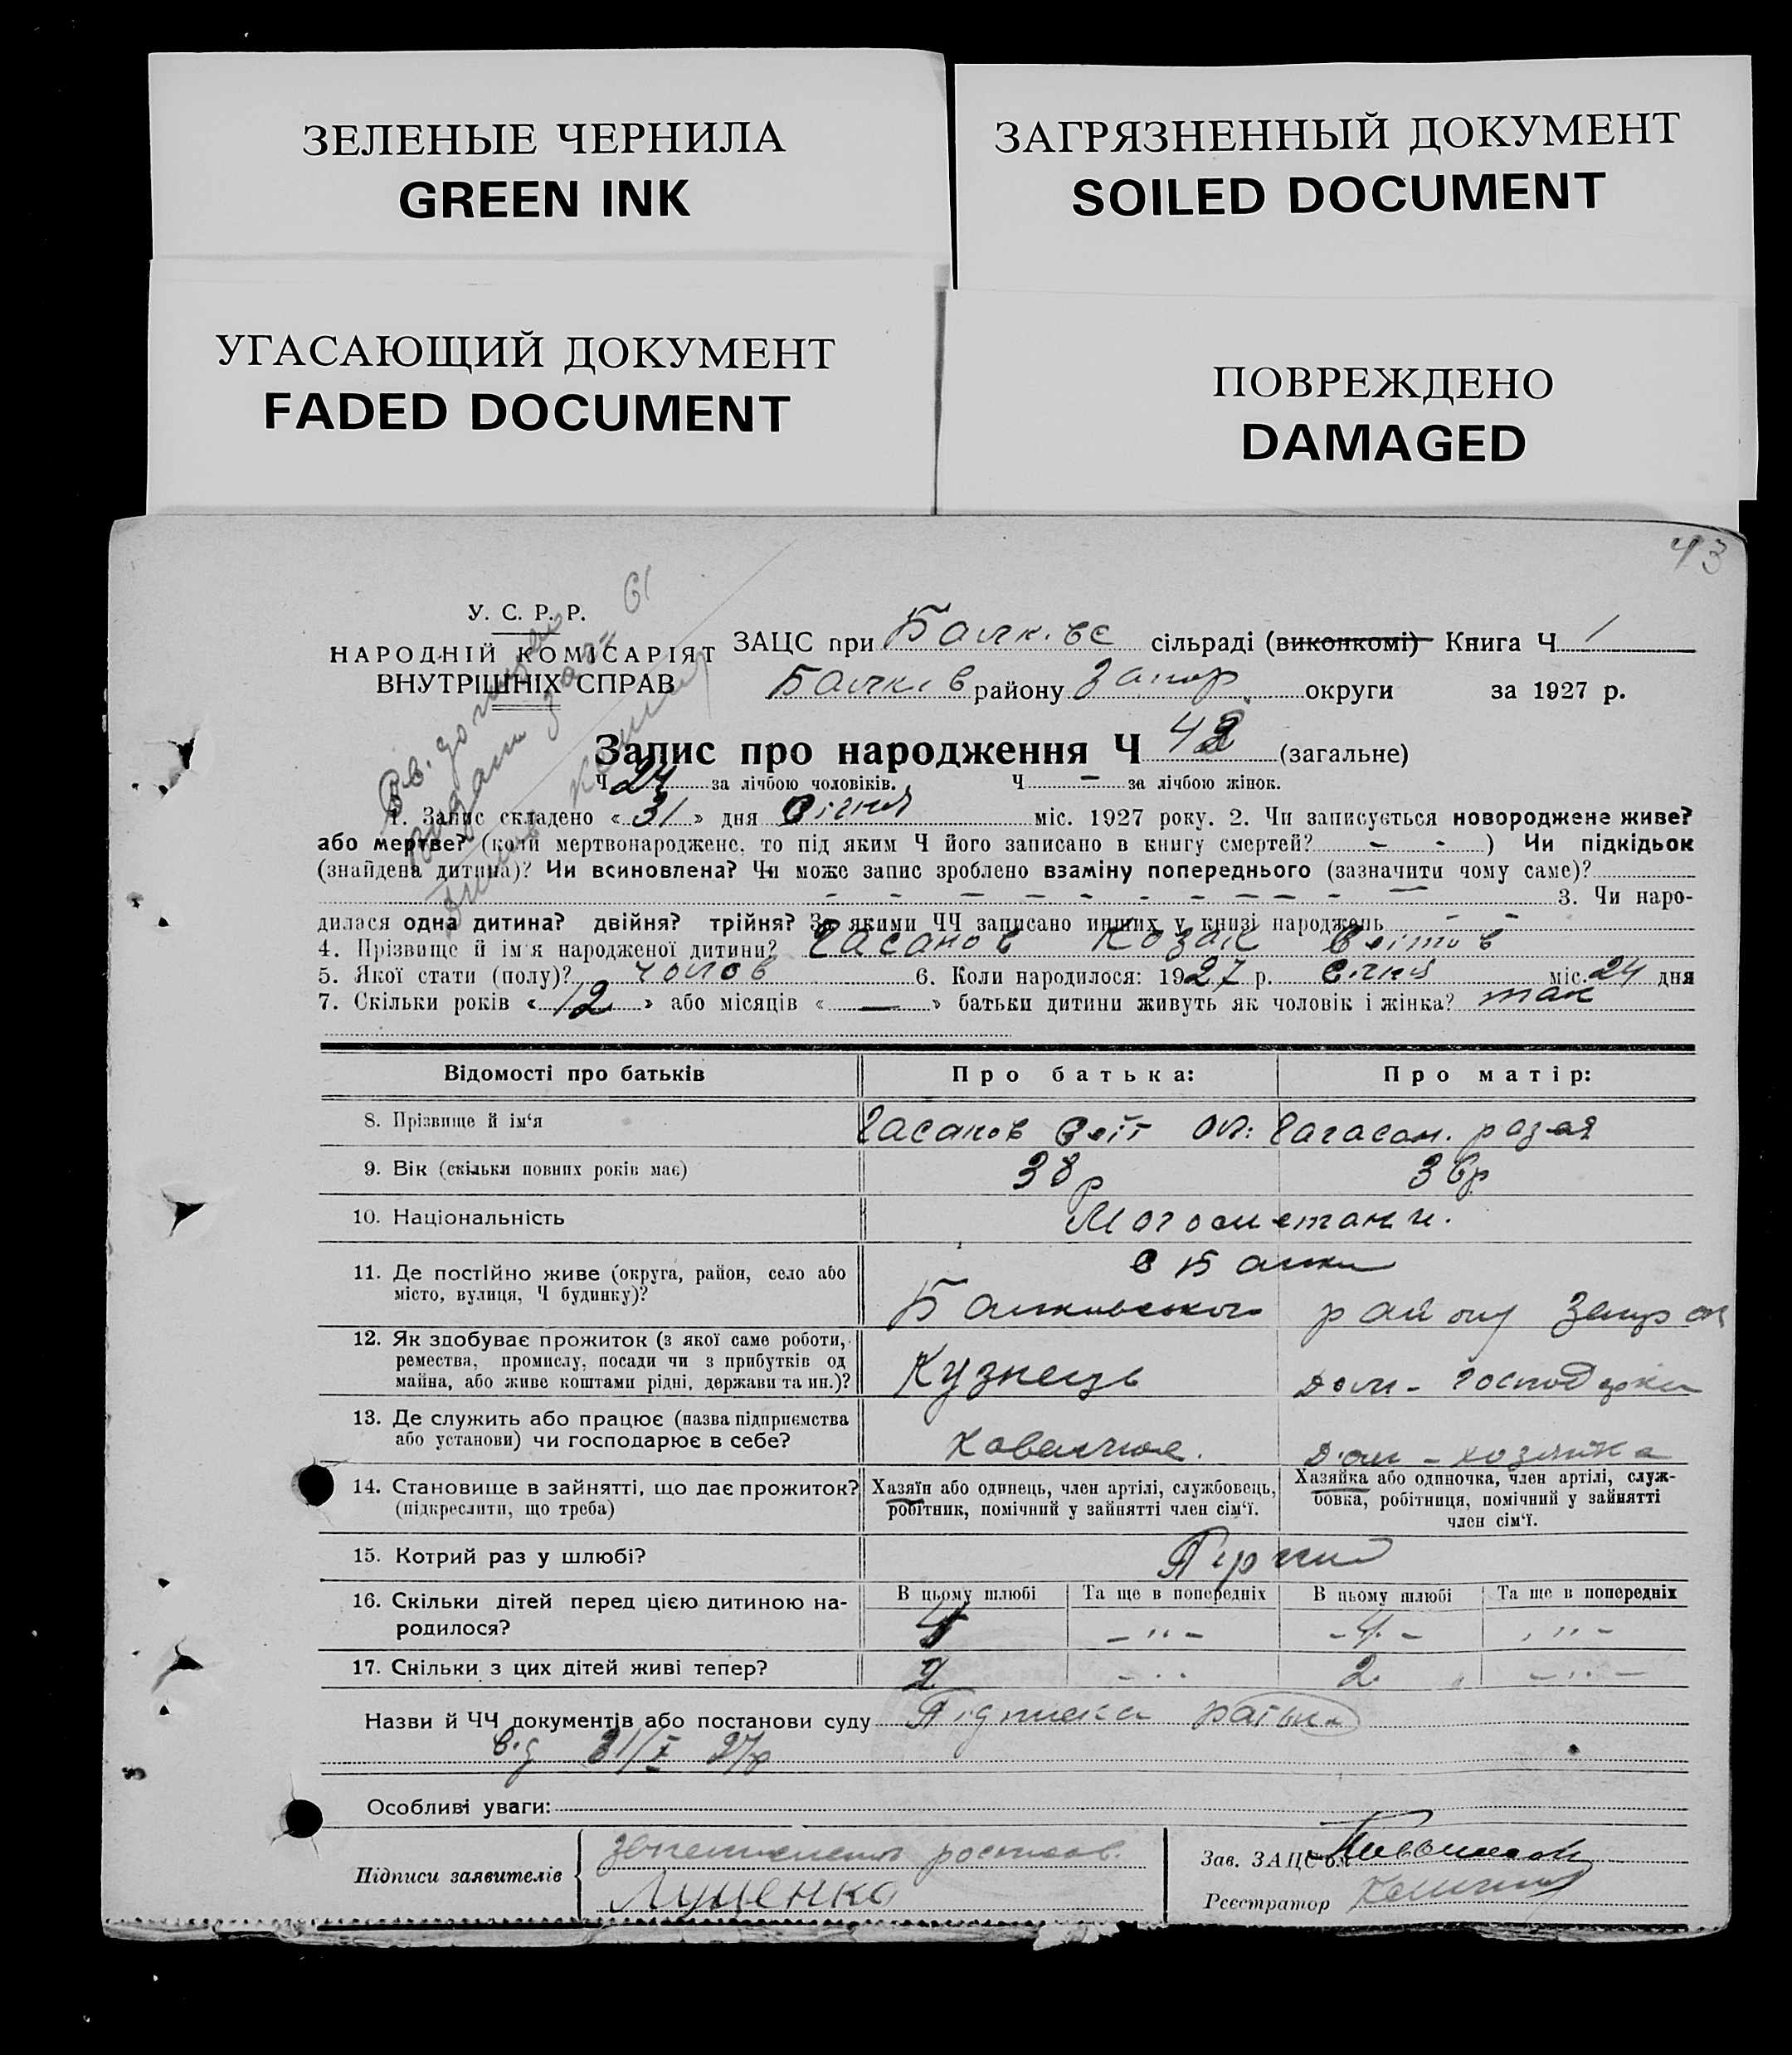 ЗЕЛЕНЫЕ ЧЕРНИЛА
GREEN INK
ЗАГРЯЗНЕННЫЙ ДОКУМЕНТ
SOILED DOCUMENT
УГАСАЮЩИЙ ДОКУМЕНТ
FADED DOCUMENT
ПОВРЕЖДЕНО
DAMAGED
43
У. С. Р. Р.
НАРОДНІЙ КОМІСАРІЯТ
ВНУТРІШНІХ СПРАВ
ЗАЦС при сільраді (виконкомі) Книга Ч 1
Балків району Запор. округи за 1927 р.
Запис про народження Ч 42 (загальне)
Ч 24 за лічбою чоловіків. Ч — за лічбою жінок.
1. Запис складено « 31 » дня Січня міс. 1927 року. 2. Чи записується новороджене живе?
або мертве? (коли мертвонароджене, то під яким Ч його записано в книгу смертей? - - ) Чи підкідьок
(знайдена дитина)? Чи всиновлена? Чи може запис зроблено взаміну попереднього (зазначити чому саме)?
3. Чи наро-
дилася одна дитина? двійня? трійня? За якими ЧЧ записано инших у книзі народжень - -
4. Прізвище й ім'я народженої дитини? Гасанов Козак
5. Якої стати (полу)? чолов 6. Коли народилося: 1927 р. Січня міс. 24 дня
7. Скільки років « 12 » або місяців « — » батьки дитини живуть як чоловік і жінка? так
Відомості про батьків Про батька: Про матір:
8. Прізвище й ім'я Гасанов
9. Вік (скільки повних років має) 38 р 36р
10. Національність
11. Де постійно живе (округа, район, село або
місто, вулиця, Ч будинку)?
с Балки
Балківського району
12. Як здобуває прожиток (з якої саме роботи,
ремества, промислу, посади чи з прибутків од
майна, або живе коштами рідні, держави та ин.)?
Кузнець Дом - господарка
13. Де служить або працює (назва підприємства
або установи) чи господарює в себе?
Дом - хозяйка
14. Становище в зайнятті, що дає прожиток?
(підкреслити, що треба)
Хазяїн або одинець, член артілі, службовець,
робітник, помічний у зайнятті член сім'ї.
Хазяйка або одиночка, член артілі, служ-
бовка, робітниця, помічний у зайнятті
член сім'ї.
15. Котрий раз у шлюбі? Перший
16. Скільки дітей перед цією дитиною на-
родилося?
В цьому шлюбі Та ще в попередніх В цьому шлюбі Та ще в попередніх
4 - " - - 4 -
17. Скільки з цих дітей живі тепер? 2 2
Назви й ЧЧ документів або постанови суду Підписка
від 31/I 27р
Особливі уваги:
Підписи заявителів
Луценко
Зав. ЗАЦС'ом
Реєстратор